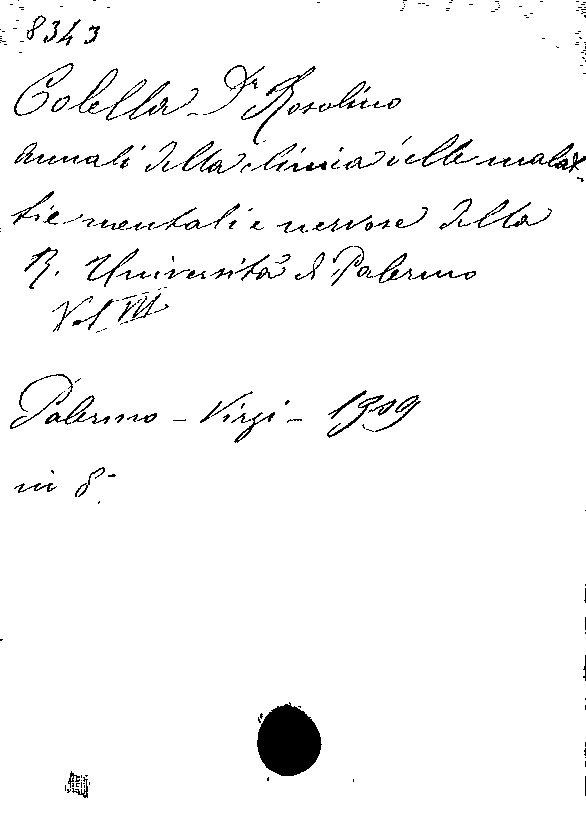 8343
Colella Dr Rosolino
Annali della clinica delle malat-
tie mentali e nervose della
R. Università di Palermo
Vol VIII
Palermo - Virzi - 1909
in 8º